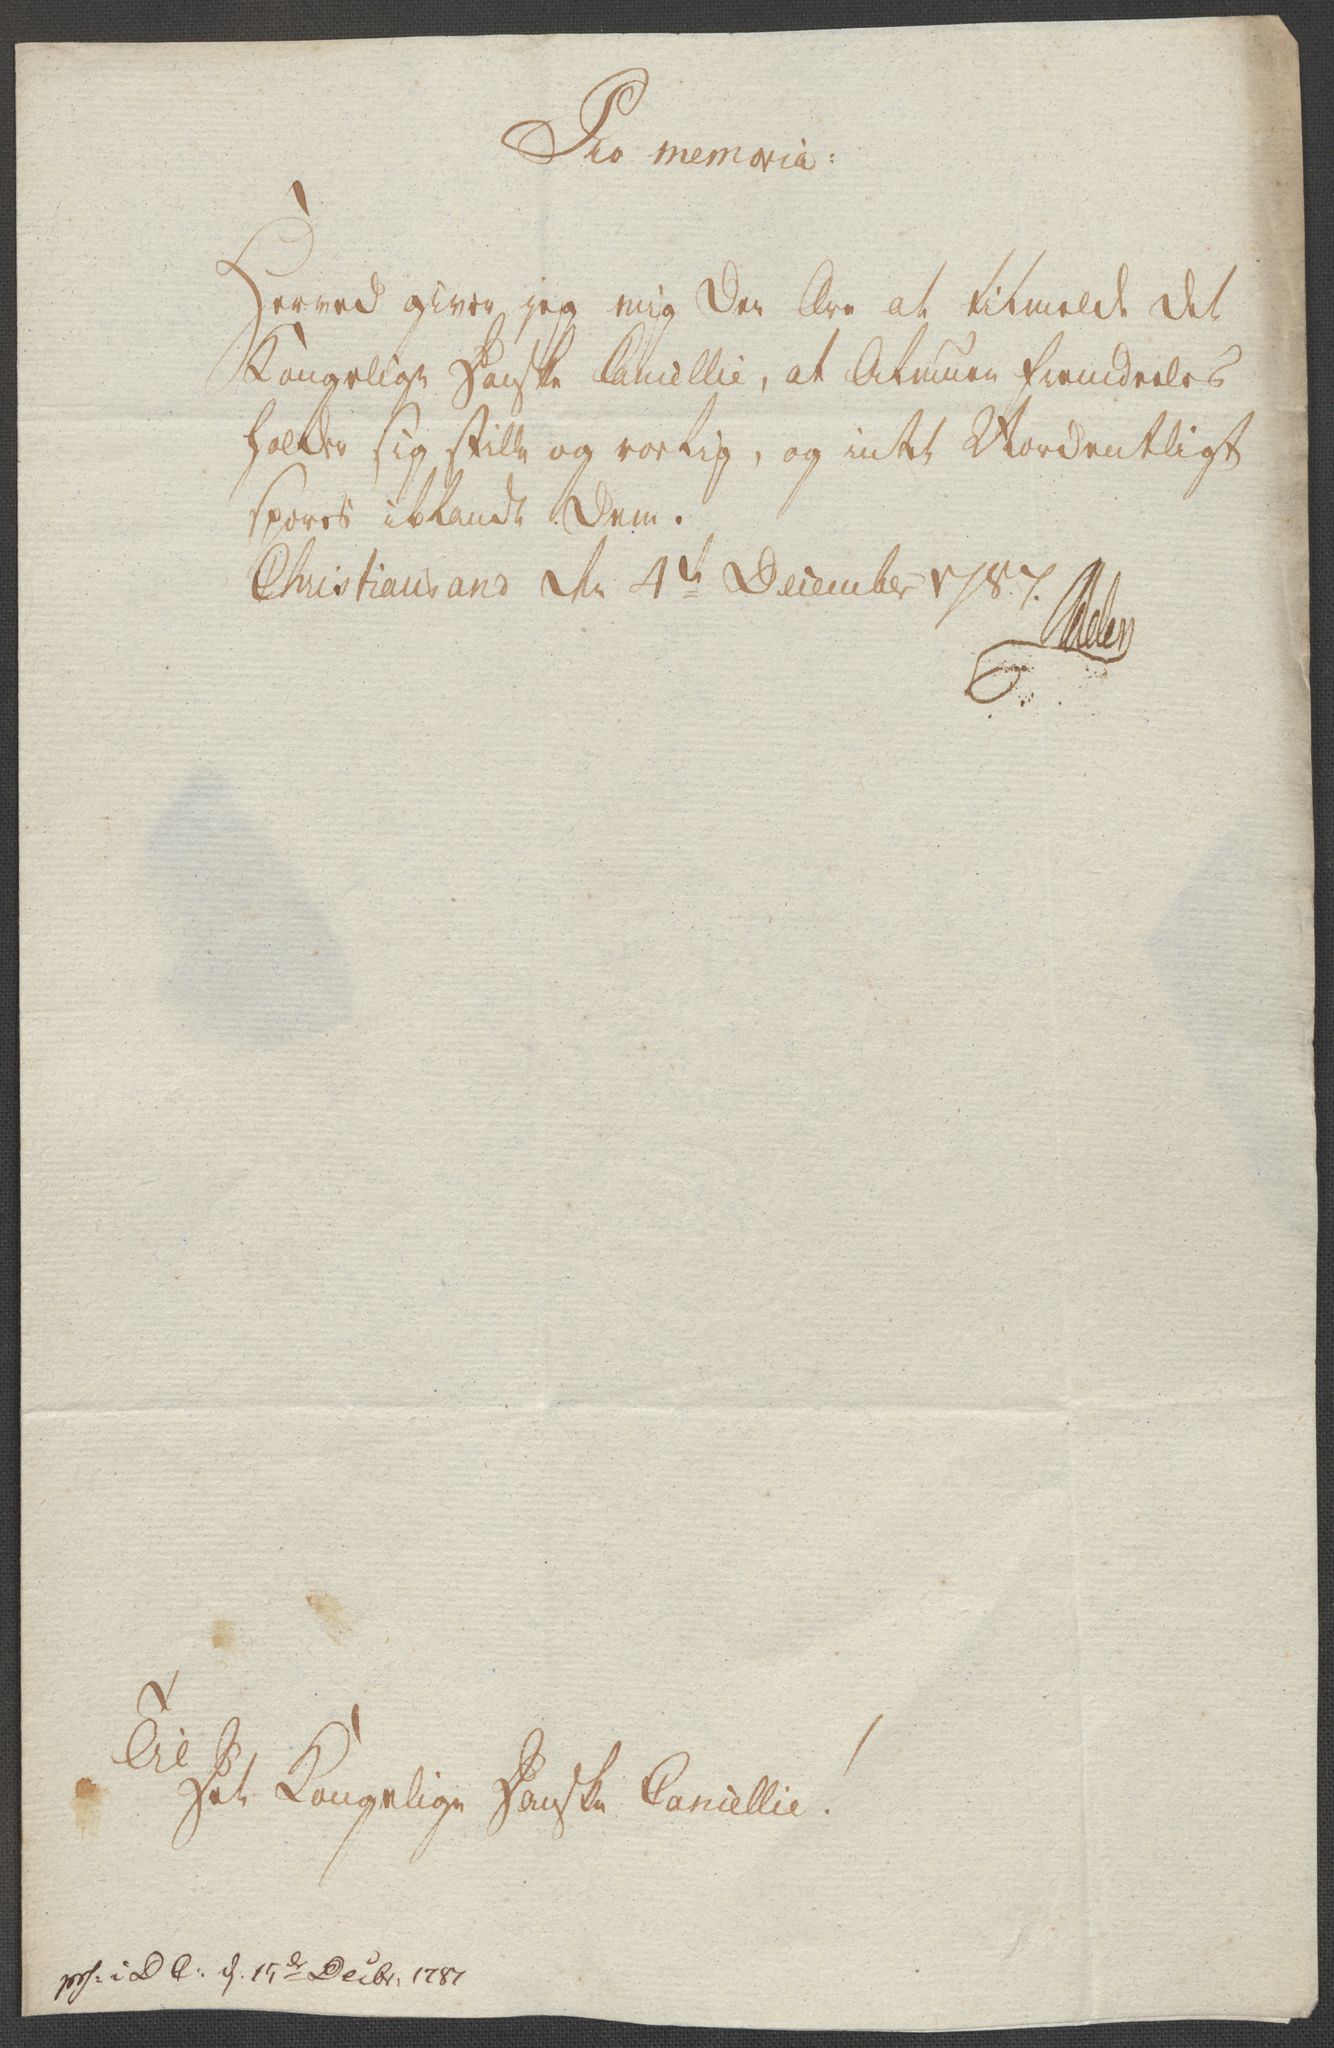 Pro memoria:
Herved giver jeg mig den Ære at tilmelde det
Kongelige Danske Cancellie, at Almuen fremdeeles
holder sig stille og roelig, og intet Uordentligt
spores iblandt dem.
Christiansand den 4de December 1787.
Adeler
Til
Det Kongelige Danske Cancellie!
prs: i D C: d. 15de Decbr: 1787